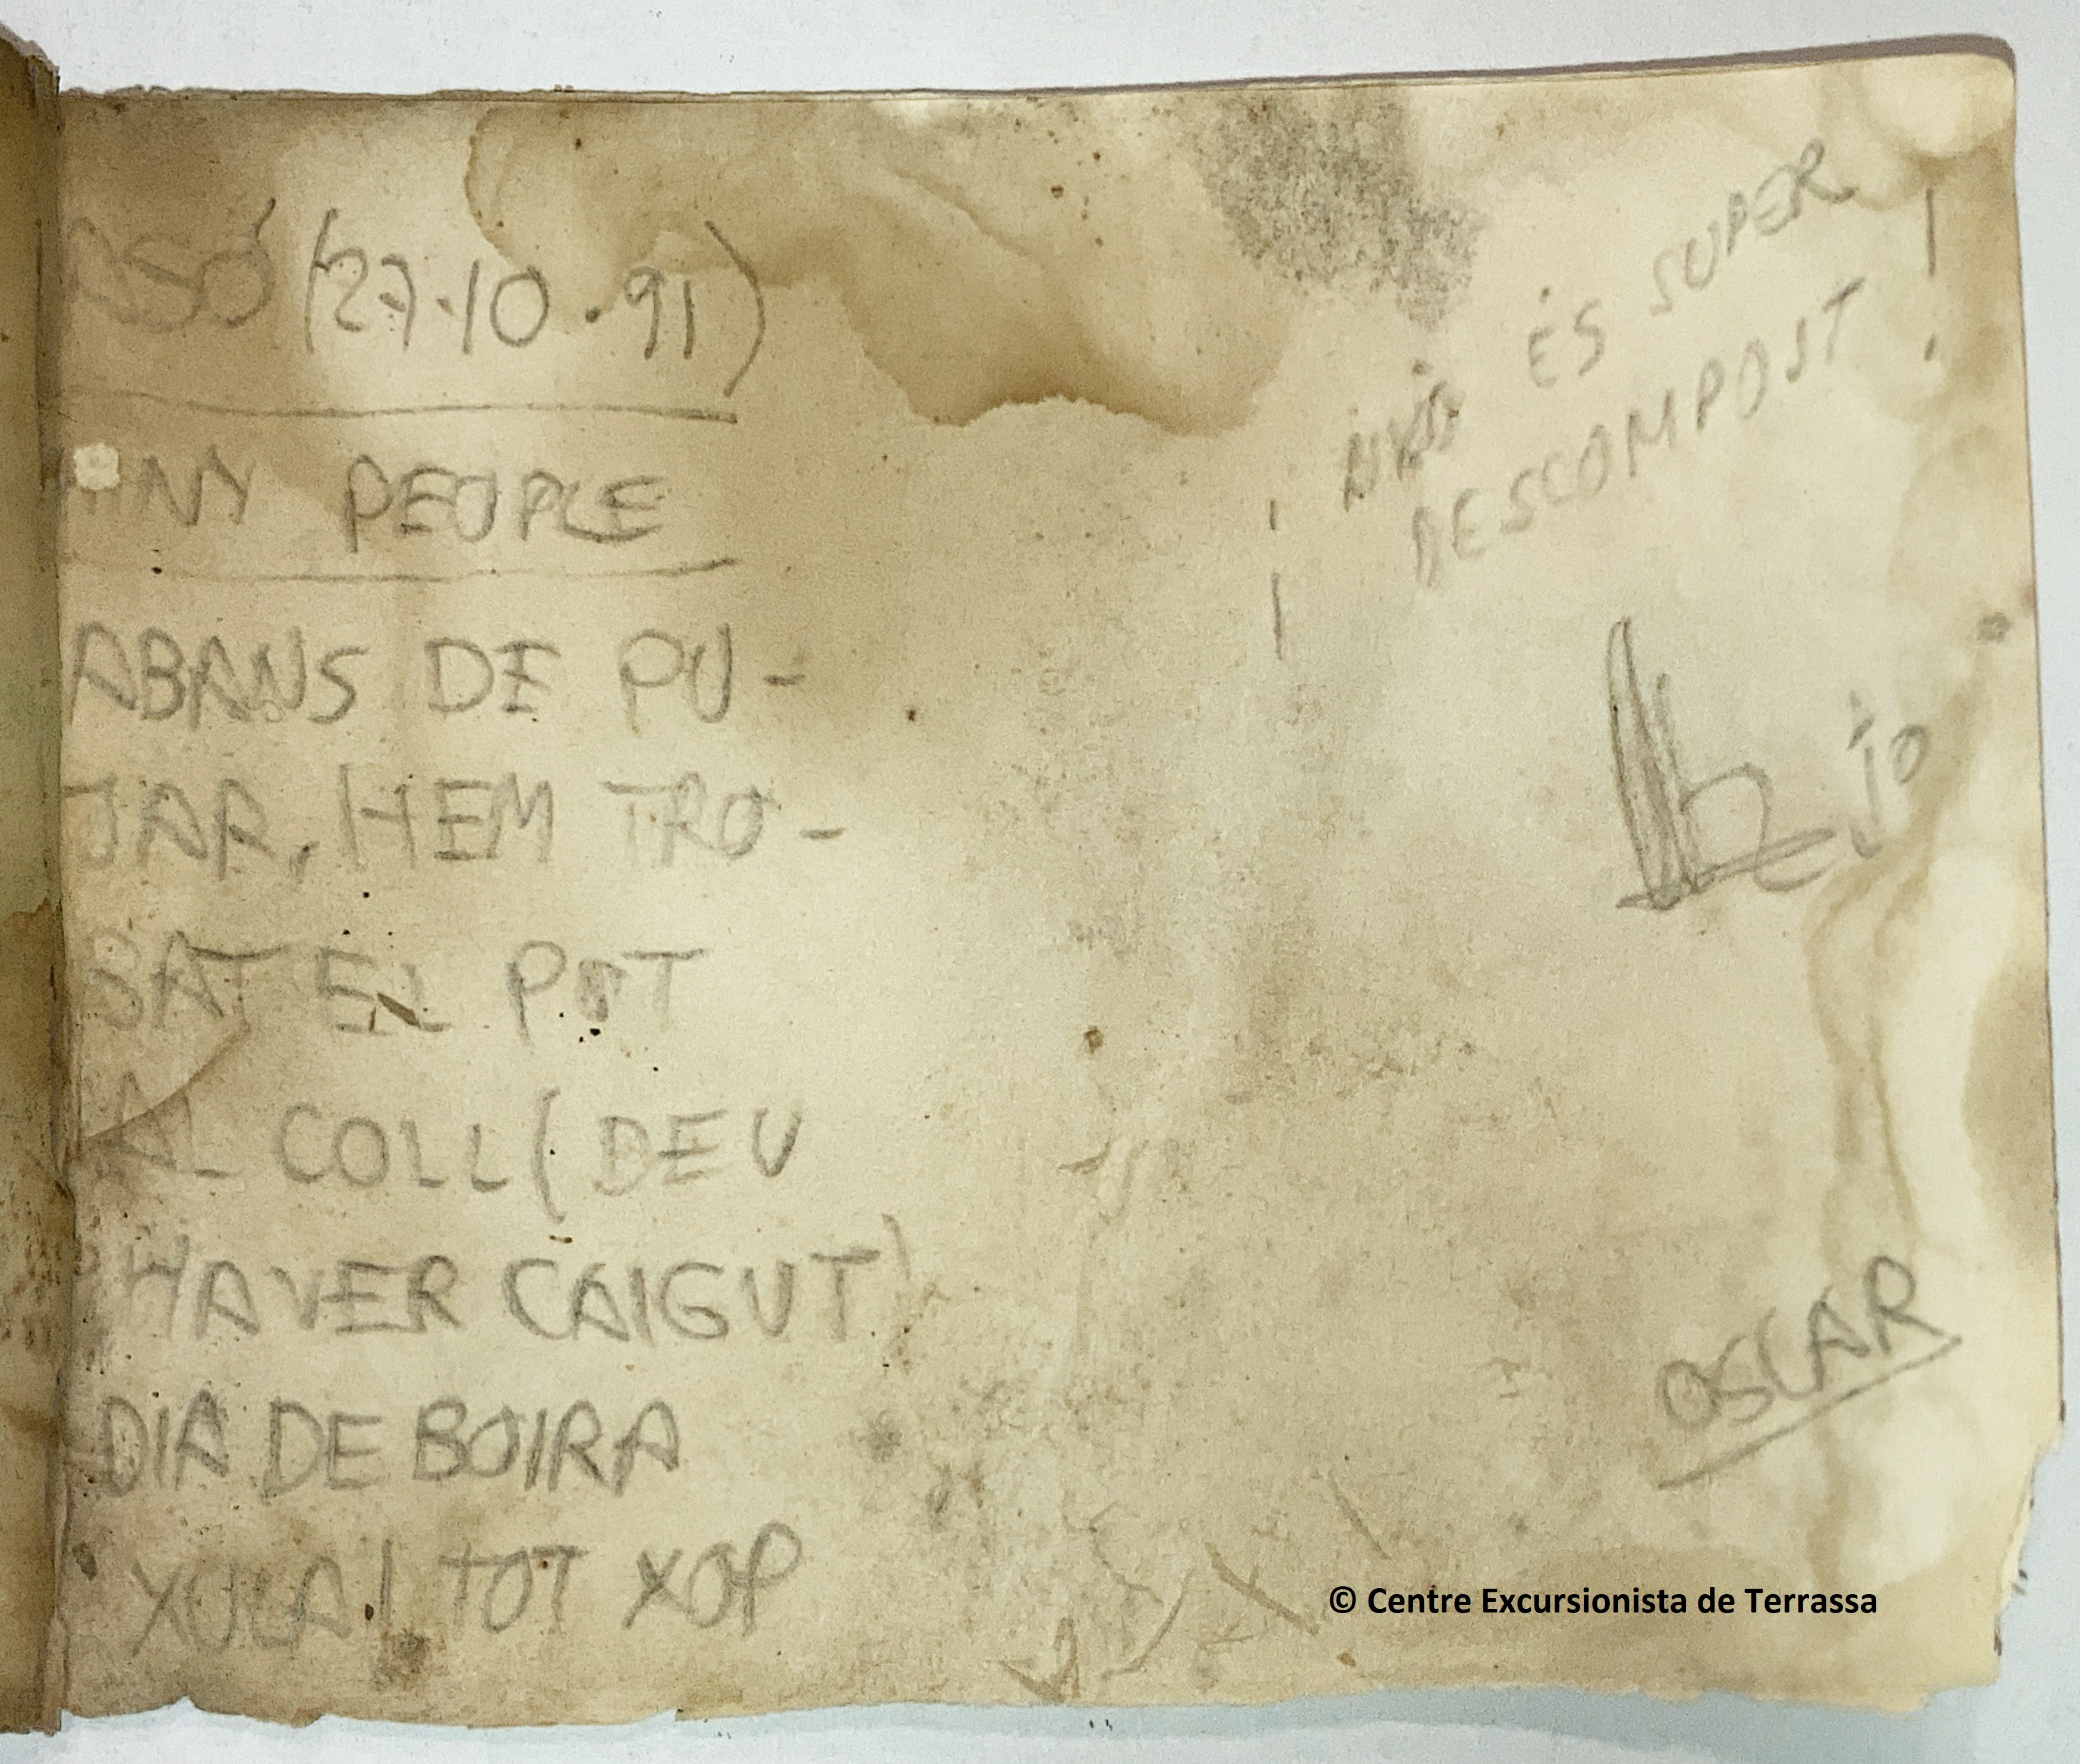 (27.10.91)
PEOPLE
ABANS DE PU-
JAR, HEM TRO-
BAT EL POT
AL COLL (DEU
HAVER CAIGUT)
DIA DE BOIRA
XULA I TOT XOP
¡ AIXÒ ÉS SUPER
DESCOMPOST !
jo
OSCAR
© Centre Excursionista de Terrassa